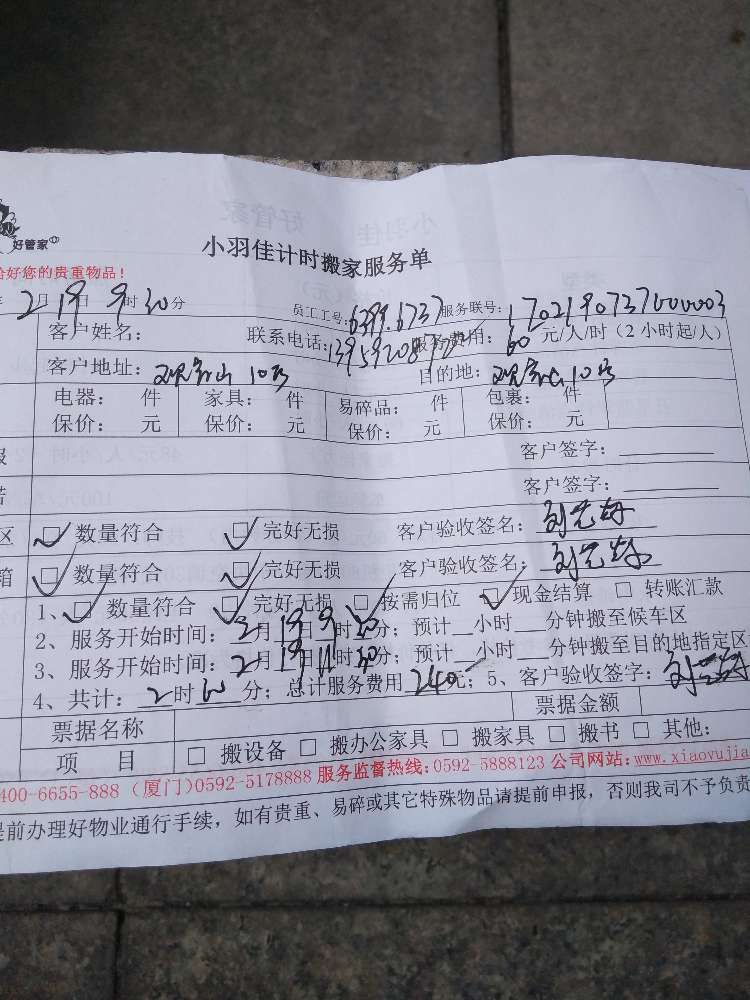 好管家
小羽佳计时搬家服务单
好您的贵重物品！
2月19日9时30分 员工工号:6399.6737 服务联号:1702190737000003
客户姓名： 联系电话: 服务费用：60元/人/时（2小时起/人）
客户地址： 10号 目的地： 10号
电器： 件 家具： 件 易碎品： 件 包裹： 件
保价： 元 保价： 元 保价： 元 保价： 元
客户签字：
客户签字：
区 数量符合 完好无损 客户验收签名：
箱 数量符合 完好无损 客户验收签名：
1、数量符合 完好无损 按需归位 现金结算 转账汇款
2、服务开始时间：2月19日9时30分；预计 小时 分钟搬至候车区
3、服务开始时间：2月19日11时30分；预计 小时 分钟搬至目的地指定区
4、共计：2时 分；总计服务费用240元；5、客户验收签字：
票据名称 票据金额
项 目 搬设备 搬办公家具 搬家具 搬书 其他：
400-6655-888（厦门）0592-5178888 服务监督热线:0592-5888123 公司网站:www.xiaoyujia
提前办理好物业通行手续，如有贵重、易碎或其它特殊物品请提前申报，否则我司不予负责